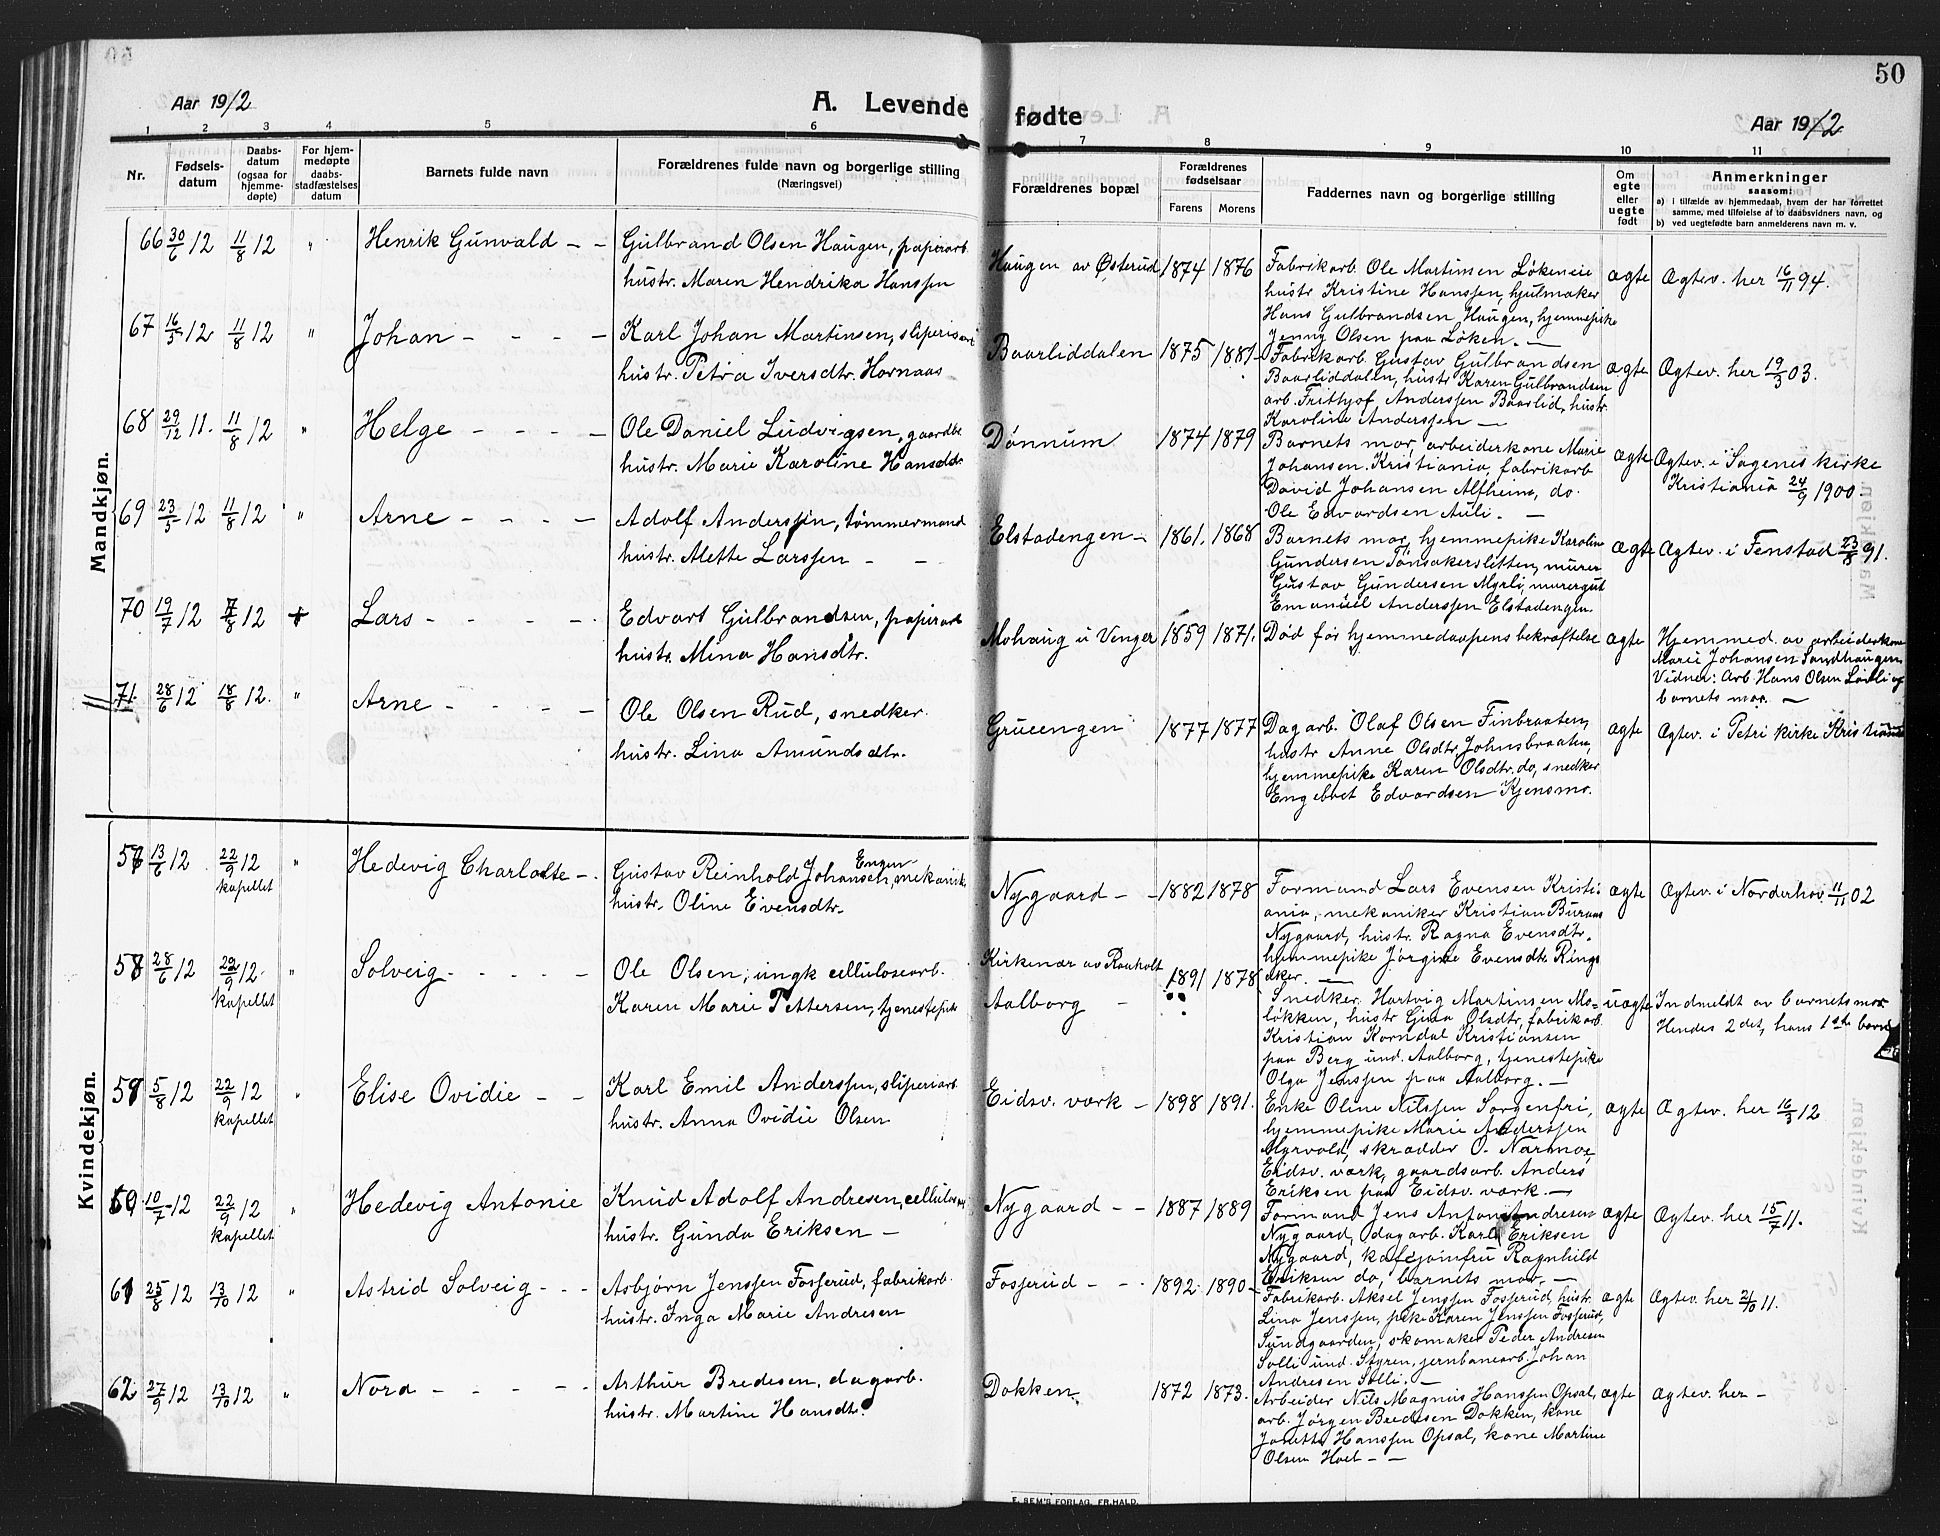 50
Aar 1912
A. Levende fødte
Aar 1912
1 2 3 4 5 6 7 8 9 10 11
Nr.
Fødsels-
datum
Daabs-
datum
(ogsaa for
hjemme-
døpte)
For hjem-
medøpte
daabs-
stadfæstelses
datum
Barnets fulde navn
Forældrenes fulde navn og borgerlige stilling
(Næringsvei)
Forældrenes bopæl
Forældrenes
fødselsaar
Farens Morens
Faddernes navn og borgerlige stilling
Om
egte
eller
uegte
født
Anmerkninger
saasom:
a) i tilfælde av hjemmedaab, hvem der har forrettet
samme, med tilføielse af to daabsvidners navn, og
b) ved uegtefødte barn anmelderens navn m. v.
Mandkjøn.
66 30/6 12 11/8 12 " Henrik Gunvald – –
Gulbrand Olsen Haugen, papirarb.
hustr. Maren Hendrika Hanssen
Haugen av Østerud 1874 1876
Fabrikarb. Ole Martinsen Løkeneie
hustr Kristine Hanssen, hjulmaker
Hans Gulbrandsen Haugen, hjemmepike
Jenny Olsen paa Løken. –
ægte Ægtev. her 16/11 94.
67 16/5 12 11/8 12 " Johan – – – –
Karl Johan Martinsen,
hustr. Petra Iversdtr. Hornaas
Baarliddalen 1875 1881
Fabrikarb. Gustav Gulbrandsen
Baarliddalen, hustr Karen Gulbrandsen
arb. Frithjof Anderssen Baarlid, hustr.
Karoline Anderssen –
ægte Ægtev. her 19/3 03.
68 29/12 11. 11/8 12 " Helge – – – –
Ole Daniel Ludvigsen, gaardbr.
hustr. Marie Karoline Hansdtr.
Dønnum 1874 1879
Barnets mor, arbeiderkone Marie
Johansen Kristiania, fabrikarb
David Johansen Alfheim, do.
Ole Edvardsen Auli. –
ægte Ægtev. i Sagenes kirke
Kristiania 24/9 1900.
69 23/5 12 11/8 12 " Arne – – – –
Adolf Anderssen, tømmermand
hustr. Alette Larssen – –
Elstadengen – 1861. 1868
Barnets mor, hjemmepike Karoline
Gundersen Tønsakersletten, murer
Gustav Gundersen Myrli, murergut
Emanuel Anderssen Elstadengen.
ægte Ægtev. i Fenstad 23/8 91.
70 19/7 12 7/8 12 + Lars – – – –
Edvart Gulbrandsen, papirarb
hustr. Mina Hansdtr.
Mohaug u Venger 1859 1871.
Død før hjemmedaapens bekræftelse
ægte Hjemmed. av arbeiderkone
Marie Johansen Sandhaugen
Vidner: Arb. Hans Olsen og
barnets mor. –
71. 28/6 12 18/8 12. " Arne – – – –
Ole Olsen Rud, snedker.
hustr. Lina Amundsdtr.
Grueengen 1877 1877
Dagarb. Olaf Olsen Finbraaten,
hustr Anne Olsdtr. Johnsbraaten,
hjemmepike Karen Olsdtr. do, snedker
Engebret Edvardsen Kjensmo.
ægte Ægtev. i Petri kirke Kristiania
Kvindekjøn.
57 13/6 12 22/9 12 " Hedevig Charlotte –
kapellet
Engen
Gustav Reinhold Johansen, mekanik.
hustr. Oline Evensdtr.
Nygaard – – 1882 1878
Formand Lars Evensen Kristi-
ania, mekaniker Kristian Buraas
Nygaard, hustr. Ragna Evensdtr.
hjemmepike Jørgine Evensdtr Rings
aker. –
ægte Ægtev. i Norderhov 11/11 02
58 28/6 12 22/9 12 " Solveig – – – –
kapellet
Ole Olsen, ungk cellulosearb.
Karen Marie Pettersen, tjenestepike
Kirkenær av Raaholt
Aalborg – 1891 1878
Snedker Hartvig Martinsen Mo-
løkken, hustr Gina Olsdtr, fabrikarb
Kristian Korndal Kristiansen
paa Berg und. Aalborg, tjenestepike
Olga Jenssen paa Aalborg. –
uægte Indmeldt av barnets mor
Hendes 2det, hans 1ste barn
59 5/8 12 22/9 12 " Elise Ovidie – –
kapellet
Karl Emil Anderssen, sliperiarb.
hustr. Anna Ovidie Olsen
Eidsv. værk – 1898 1891.
Enke Oline Nilssen Sorgenfri,
hjemmepike Marie Anderssen
Myrvold, skrædder O. Narmo,
Eidsv. værk, gaardsarb. Anders
Eriksen paa Eidsv. værk. –
ægte Ægtev. her 16/3 12
60 10/7 12 22/9 12 " Hedevig Antonie
kapellet
Knud Adolf Andresen,
hustr. Gunda Eriksen –
Nygaard – – 1887 1889
Formand Jens Anton Andresen
Nygaard, dagarb. Karl Eriksen
Nygaard, kafejomfru Ragnhild
Eriksen do, barnets mor. –
ægte Ægtev. her 15/7 11.
61 25/8 12 13/10 12 " Astrid Solveig – – –
Asbjørn Jenssen Fosserud, fabrikarb.
hustr. Inga Marie Andresen
Fosserud – – 1892 1890
Fabrikarb. Aksel Jenssen Fosserud, hustr.
Lina Jenssen, pike Karen Jenssen Fosserud,
Sundgaarden, skomaker Peder Andresen
Solli und. Styren, jernbanearb. Johan
Andresen Solli. –
ægte Ægtev. her 21/10 11.
62 27/9 12 13/10 12 " Nora – – – – –
Arthur Bredesen, dagarb.
hustr. Martine Hansdtr.
Dokken 1872 1873.
Arbeider Nils Magnus Hanssen Opsal,
arb. Jørgen Bredesen Dokken, kone
Josette Hanssen Opsal, kone Martine
Olsen Hoel – –
ægte Ægtev. her –
F. SEM'S FORLAG, FR.HALD.